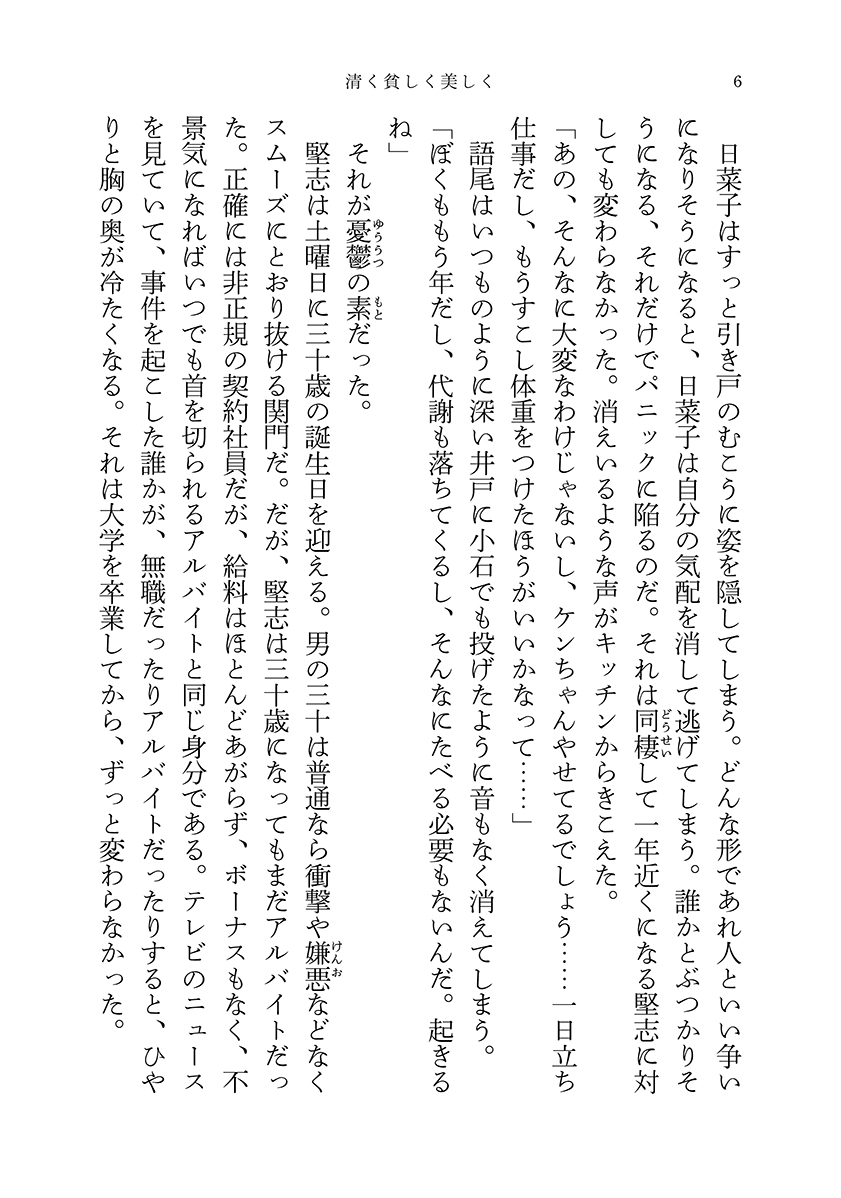 清く貧しく美しく
6
日菜子はすっと引き戸のむこうに姿を隠してしまう。どんな形であれ人といい争い
になりそうになると、日菜子は自分の気配を消して逃げてしまう。誰かとぶつかりそ
うになる、それだけでパニックに陥るのだ。それは同棲どうせいして一年近くになる堅志に対
しても変わらなかった。消えいるような声がキッチンからきこえた。
「あの、そんなに大変なわけじゃないし、ケンちゃんやせてるでしょう……一日立ち
仕事だし、もうすこし体重をつけたほうがいいかなって……」
語尾はいつものように深い井戸に小石でも投げたように音もなく消えてしまう。
「ぼくももう年だし、代謝も落ちてくるし、そんなにたべる必要もないんだ。起きる
ね」
それが憂鬱ゆううつの素もとだった。
堅志は土曜日に三十歳の誕生日を迎える。男の三十は普通なら衝撃や嫌悪けんおなどなく
スムーズにとおり抜ける関門だ。だが、堅志は三十歳になってもまだアルバイトだっ
た。正確には非正規の契約社員だが、給料はほとんどあがらず、ボーナスもなく、不
景気になればいつでも首を切られるアルバイトと同じ身分である。テレビのニュース
を見ていて、事件を起こした誰かが、無職だったりアルバイトだったりすると、ひや
りと胸の奥が冷たくなる。それは大学を卒業してから、ずっと変わらなかった。